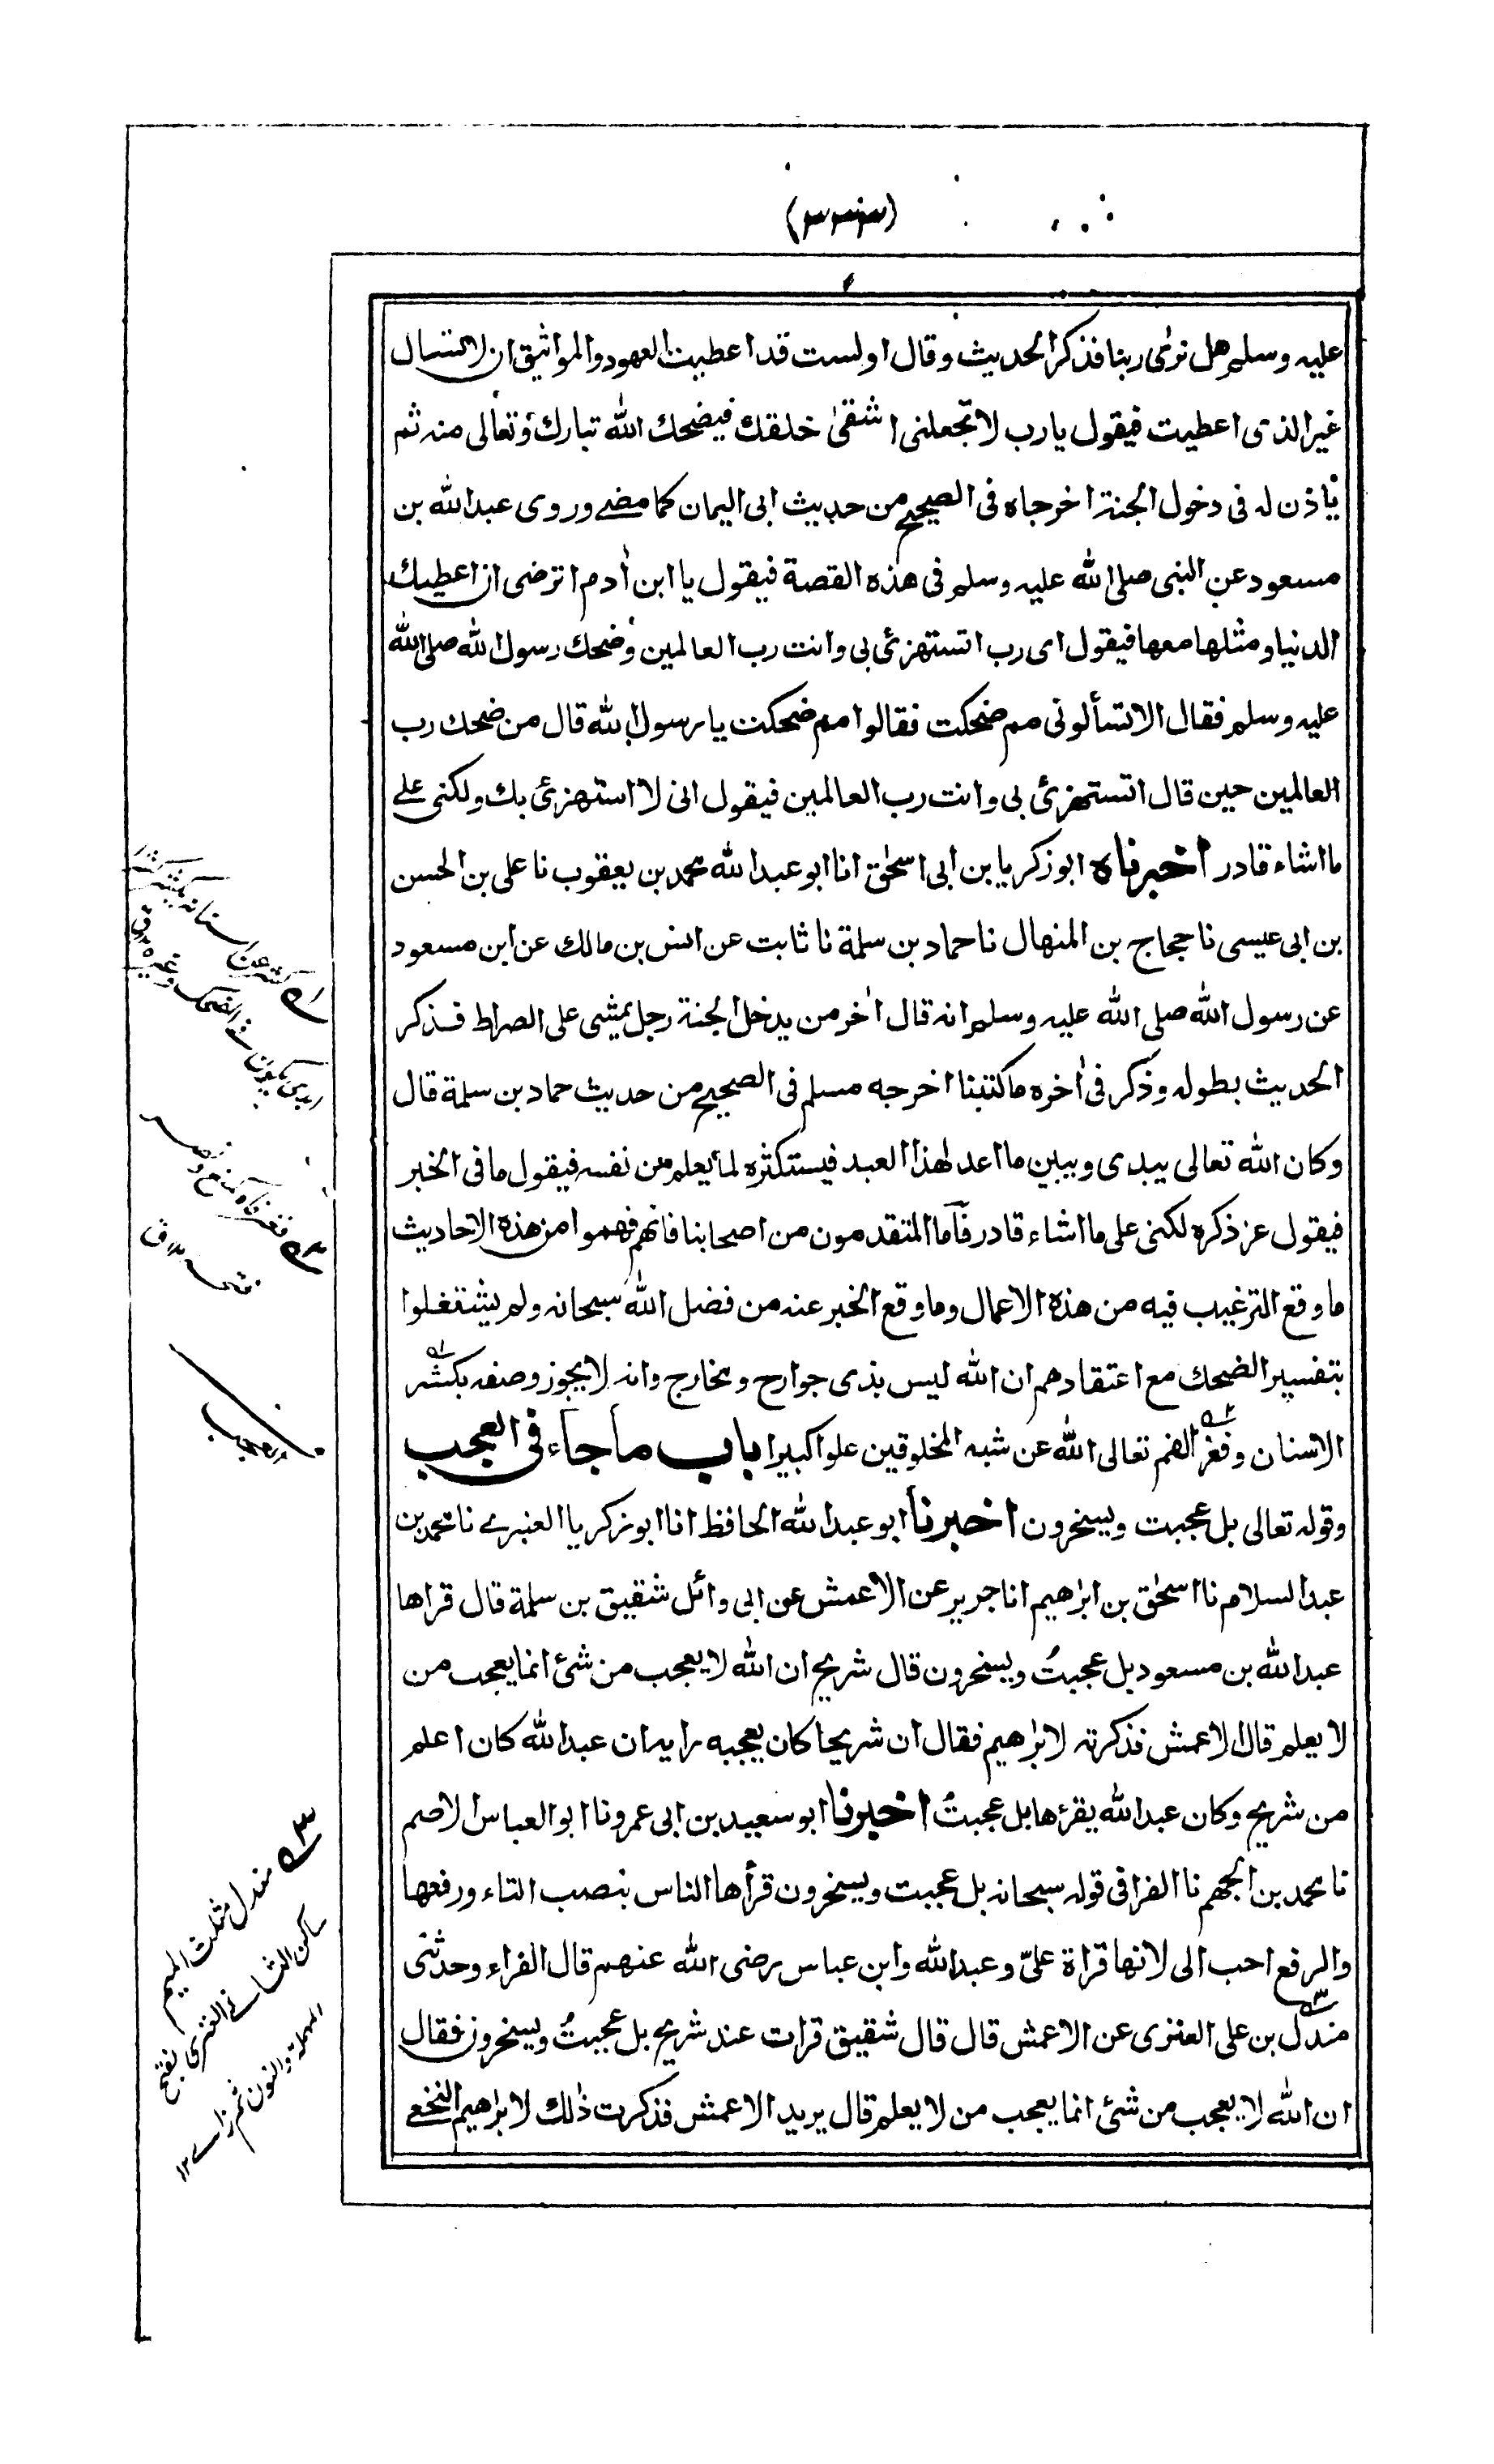 عليه وسلم هل نرى ربنا فذكر الحديث وقال اولست قد اعطيت العهود والمواثيق ان لا تسال
غير الذى اعطيت فيقول يا رب لا تجعلنى اشقى خلقك فيضحك الله تبارك وتعالى منه ثم
ياذن له فى دخول الجنة اخرجاه فى الصحيح من حديث ابى اليمان كما مضے وروى عبد الله بن
مسعود عن النبى صلى الله عليه وسلم فى هذه القصة فيقول يا ابن اٰدم اترضى ان اعطيك
الدنيا ومثلها معها فيقول اى رب اتستهزئ بى وانت رب العالمين وضحك رسول الله صلى الله
عليه وسلم فقال الا تسألونى مم ضحكت فقالوا مم ضحكت يا رسول الله قال من ضحك رب
العالمين حين قال اتستهزئ بى وانت رب العالمين فيقول انى لا استهزئ بك ولكنى علے
ما اشاء قادر اخبرناه ابو زكريا بن ابى اسحٰق انا ابو عبد الله محمد بن يعقوب نا على بن الحسن
بن ابى عيسى نا حجاج بن المنهال نا حماد بن سلمة نا ثابت عن انس بن مالك عن ابن مسعود
عن رسول الله صلى الله عليه وسلم انه قال اٰخر من يدخل الجنة رجل يمشى على الصراط فذكر
الحديث بطوله وذكر فى اٰخره ما كتبنا اخرجه مسلم فى الصحيح من حديث حماد بن سلمة قال
وكان الله تعالى يبدى ويبين ما اعد لهذا العبد فيستكثره لما يعلم من نفسه فيقول ما فى الخبر
فيقول عز ذكره لكنى على ما اشاء قادر فآما المتقدمون من اصحابنا فانهم فهموا من هذه الاحاديث
ما وقع الترغيب فيه من هذه الاعمال وما وقع الخبر عنه من فضل الله سبحانه ولم يشتغلوا
بتفسير الضحك مع اعتقادهم ان الله ليس بذى جوارح ومخارج وانه لا يجوز وصفه بكشر
الاسنان وفغر الفم تعالى الله عن شبه المخلوقين علوا كبيرا باب ما جاء فى العجب
وقوله تعالى بل عجبت ويسخرون اخبرنا ابو عبد الله الحافظ انا ابو زكريا العنبرے نا محمد بن
عبد السلام نا اسحٰق بن ابرٰهيم انا جرير عن الاعمش عن ابى وائل شقيق بن سلمة قال قراها
عبد الله بن مسعود بل عجبتُ ويسخرون قال شريح ان الله لا يعجب من شئ انما يعجب من
لا يعلم قال الاعمش فذكرته لابرٰهيم فقال ان شريحا كان يعجبه رايه ان عبد الله كان اعلم
من شريح وكان عبد الله يقرؤها بل عجبتُ اخبرنا ابو سعيد بن ابى عمرو نا ابو العباس الاصم
نا محمد بن الجهم نا الفرا فى قوله سبحانه بل عجبت ويسخرون قرأها الناس بنصب التاء ورفعها
والرفع احب الى لانها قراة علىّ وعبد الله وابن عباس رضى الله عنهم قال الفراء وحدثنى
مندل بن على العنزى عن الاعمش قال قال شقيق قرات عند شريح بل عجبتُ ويسخرون فقال
ان الله لا يعجب من شئ انما يعجب من لا يعلم قال يريد الاعمش فذكرت ذٰلك لابرٰهيم النخعے
العجب
مندل مثلث الميم
ساكن الثانى العنزى بفتح
المهملة والنون ثم زاے ١٢